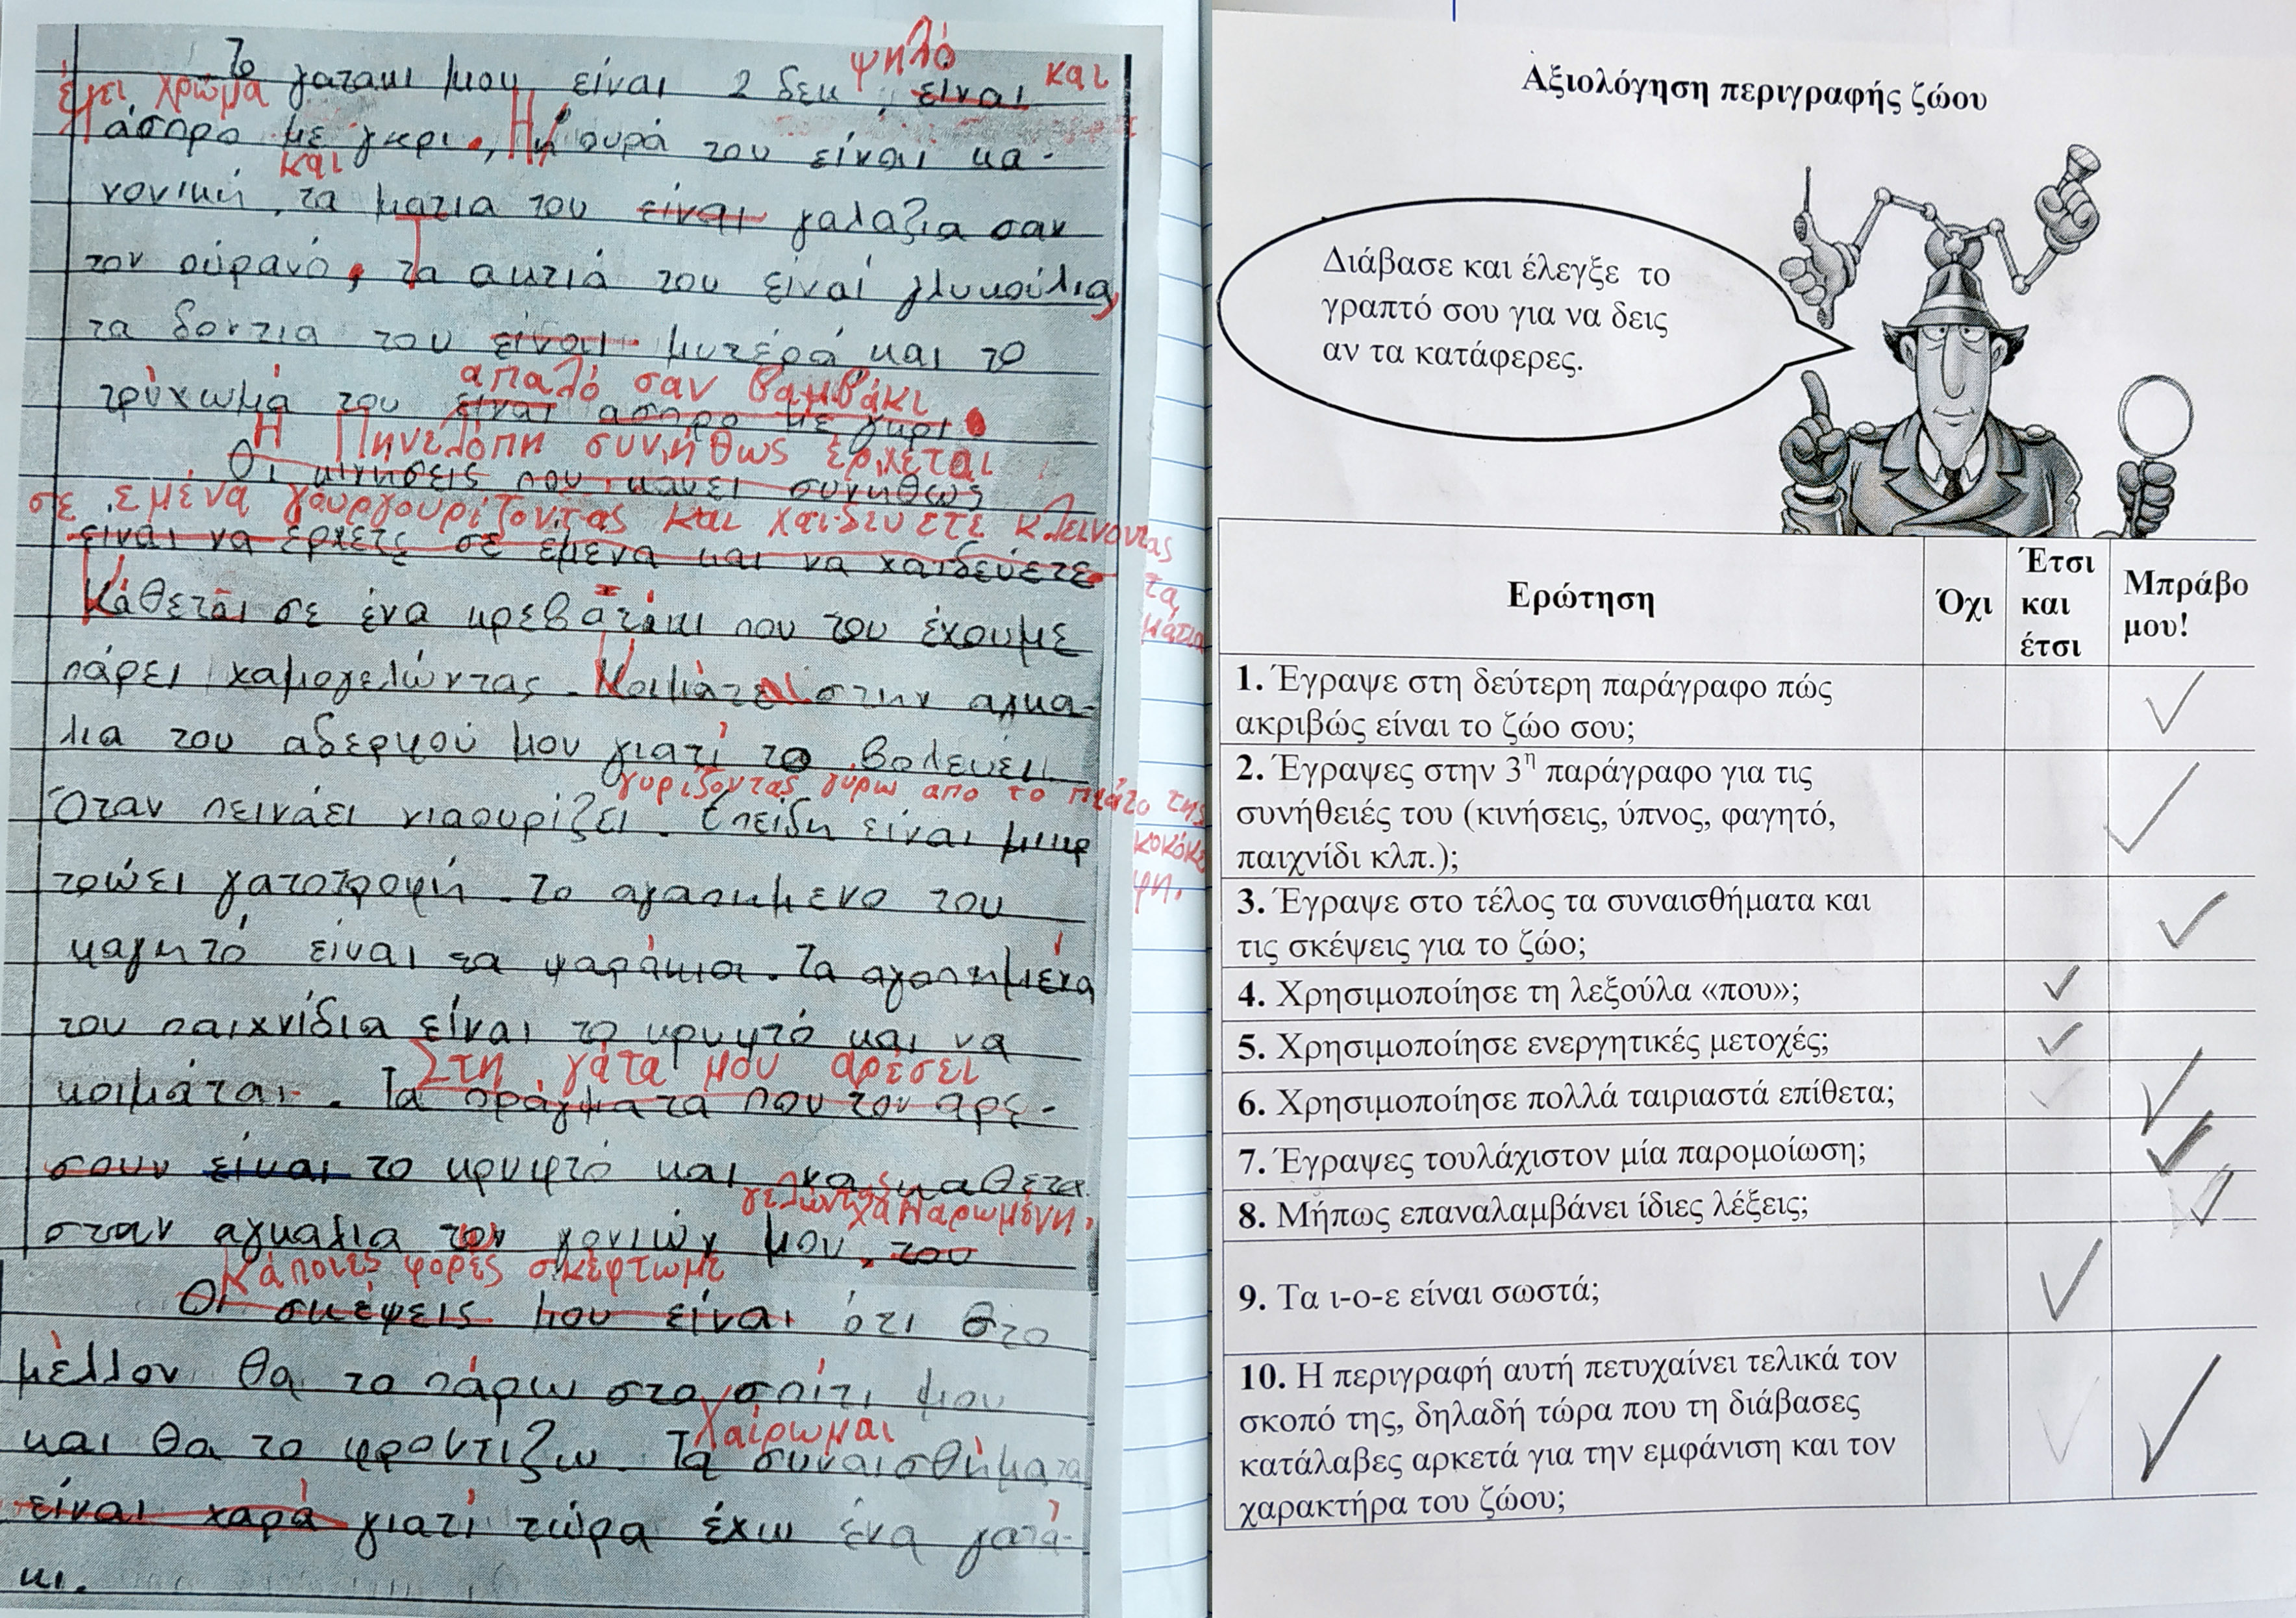 ψηλό και
Το γατακι μου είναι 2 δεκ, είναι
έχει χρώμα
άσπρο με γκρι., Η η ουρά του είναι κα-
και
νονική, τα ματια του είναι γαλαζια σαν
τον ούρανό. Τα αυτιά του είναί γλυκούλια,
τα δοντια του είναι μυτέρά και το
απαλό σαν βαμβάκι
τρύχωμά του είναι ασπρο με γκρι.
Η Πηνελόπη συνήθως έρχεται
Οι κινησεις που κανει συνηθως
σε εμένα γουργουρίζοντας και χαιδευετε κλεινοντας
τα
μάτια
είναι να έρχετε σε έμενα και να χαιδεύετε.
Κάθεται σε ένα κρεβατάκι που του έχουμε
πάρει χαμογελώντας. Κοιμάται στην αγκα-
λια του αδερφού μου γιατί το βολευει.
γυρίζοντας γυρω απο το πιάτο της
Όταν πεινάει νιαουρίζει. Επείδη είναι μικρ
κοκόκε
ψη.
τρώει γατοτροφή. Το αγαπημενο του
φαγητό είναι τα ψαράκια. Τα αγαπημένα
του παιχνίδια είναι το κρυφτό και να
Στη γάτα μου αρέσει
κοιμάται. Τα πράγματα που του αρε-
σουν είναι το κρυφτό και να καθετα
γελώντας χαμαρωμένη.
σταν αγκαλια των γονιών μου, του
Κάποιες φορές σκέφτωμε
Οι σκέψεις μου είναι ότι στο
μέλλον θα το πάρω στο σπίτι μου
Χαίρωμαι
και θα το φροντιζω. Τα συναισθήματα
είναι χαρά γιατί τώρα έχω ένα γατά-
κι.
Αξιολόγηση περιγραφής ζώου
Διάβασε και έλεγξε το
γραπτό σου για να δεις
αν τα κατάφερες.
Ερώτηση Όχι Έτσι και έτσι Μπράβο μου!
1. Έγραψε στη δεύτερη παράγραφο πώς
ακριβώς είναι το ζώο σου;
2. Έγραψες στην 3η παράγραφο για τις
συνήθειές του (κινήσεις, ύπνος, φαγητό,
παιχνίδι κλπ.);
3. Έγραψε στο τέλος τα συναισθήματα και
τις σκέψεις για το ζώο;
4. Χρησιμοποίησε τη λεξούλα «που»;
5. Χρησιμοποίησε ενεργητικές μετοχές;
6. Χρησιμοποίησε πολλά ταιριαστά επίθετα;
7. Έγραψες τουλάχιστον μία παρομοίωση;
8. Μήπως επαναλαμβάνει ίδιες λέξεις;
9. Τα ι-ο-ε είναι σωστά;
10. Η περιγραφή αυτή πετυχαίνει τελικά τον
σκοπό της, δηλαδή τώρα που τη διάβασες
κατάλαβες αρκετά για την εμφάνιση και τον
χαρακτήρα του ζώου;